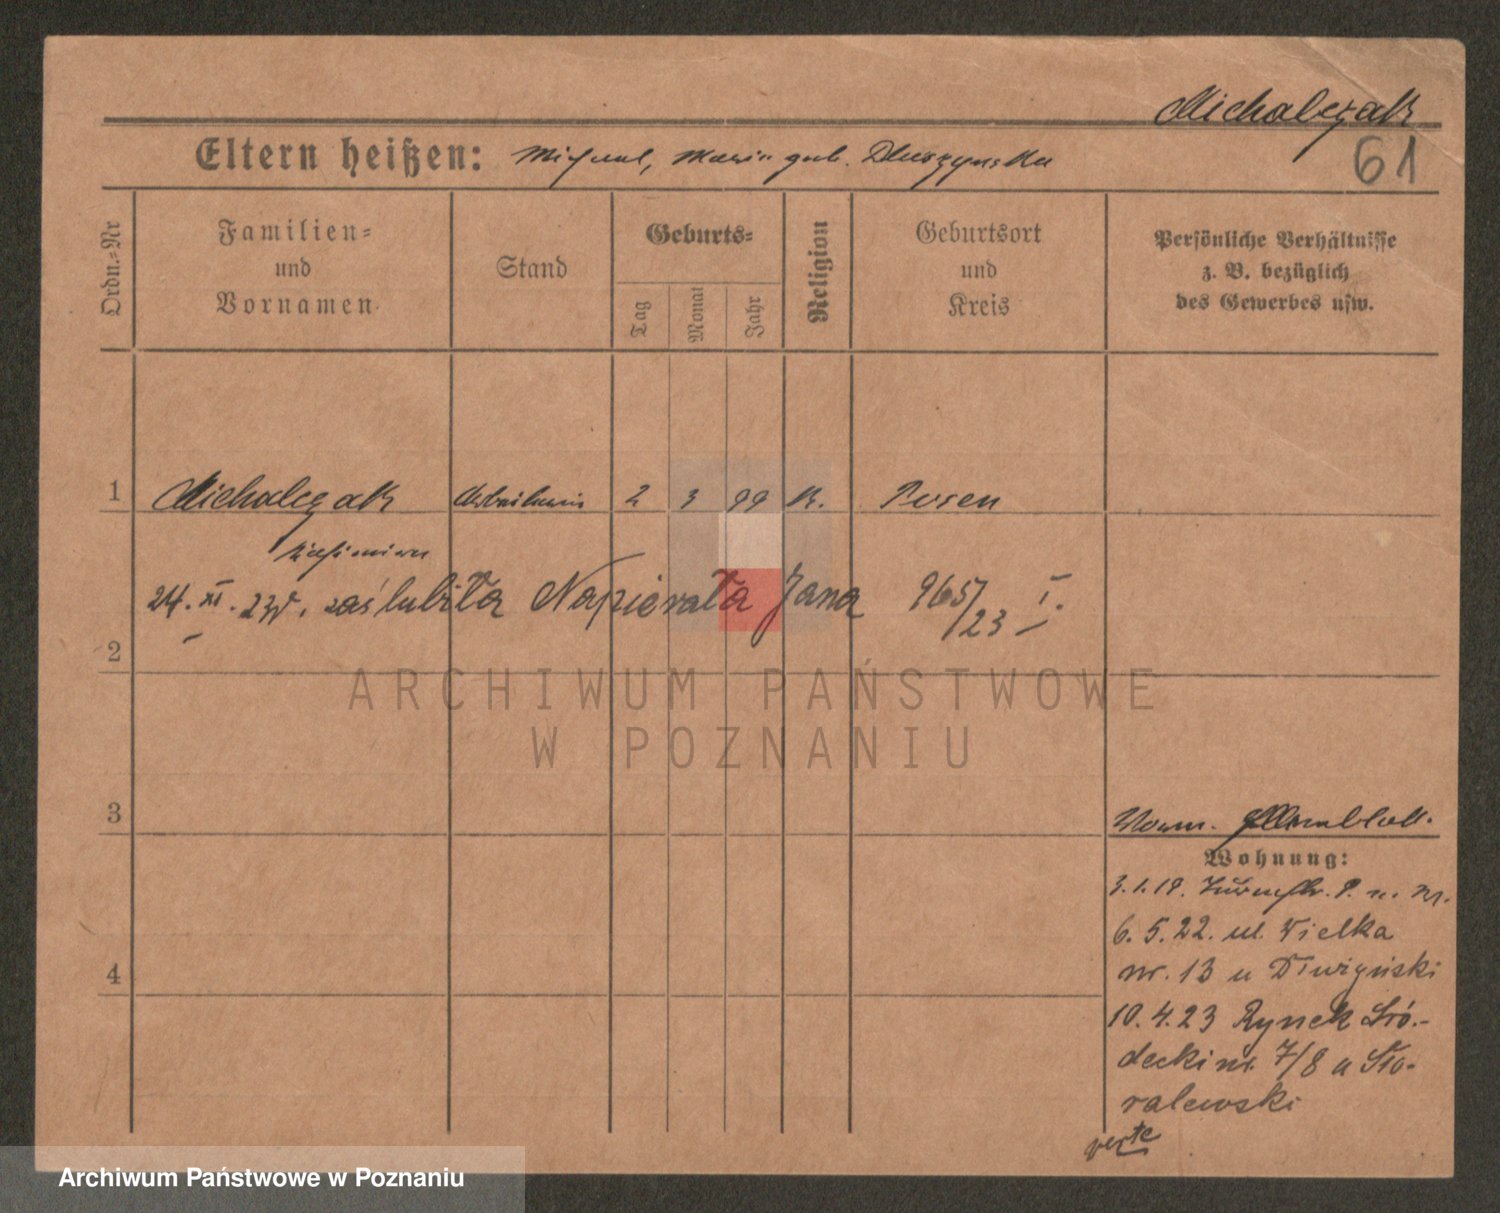 Michalczak
61
Eltern heißen: Michael, Maria geb. Dluszynska
Ordn.-Nr
Familien-
und
Vornamen
Stand
Geburts-
Tag
Monat
Jahr
Religion
Geburtsort
und
Kreis
Persönliche Verhältnisse
z. B. bezüglich
des Gewerbes usw.
1 Michalczak Arbeiterin 2 3 99 K. Posen
Kasimira
24. XI. 23 r. zaślubiła Napierała Jana 965/23 I.
2
3
4
Wohnung:
3.1.19. Turmstr.
6. 5. 22. ul. Wielka
nr. 13 u
10. 4. 23 Rynek Śró-
decki nr. 7/8 u Sto-
ralewski
verte
ARCHIWUM PAŃSTWOWE
W POZNANIU
Archiwum Państwowe w Poznaniu